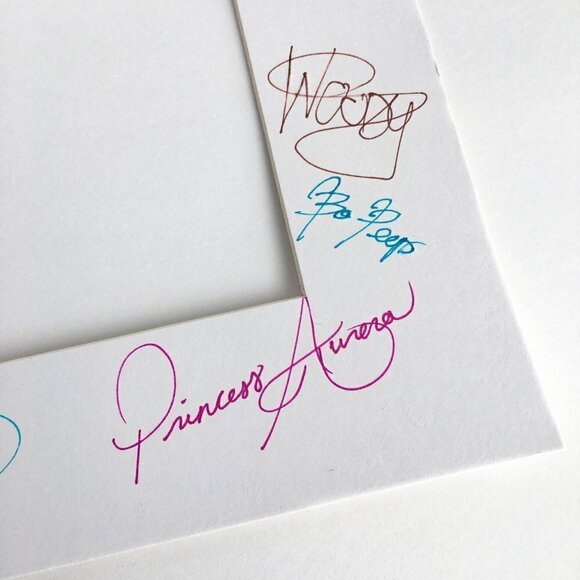 WOODY
Bo Peep
Princess Aurora